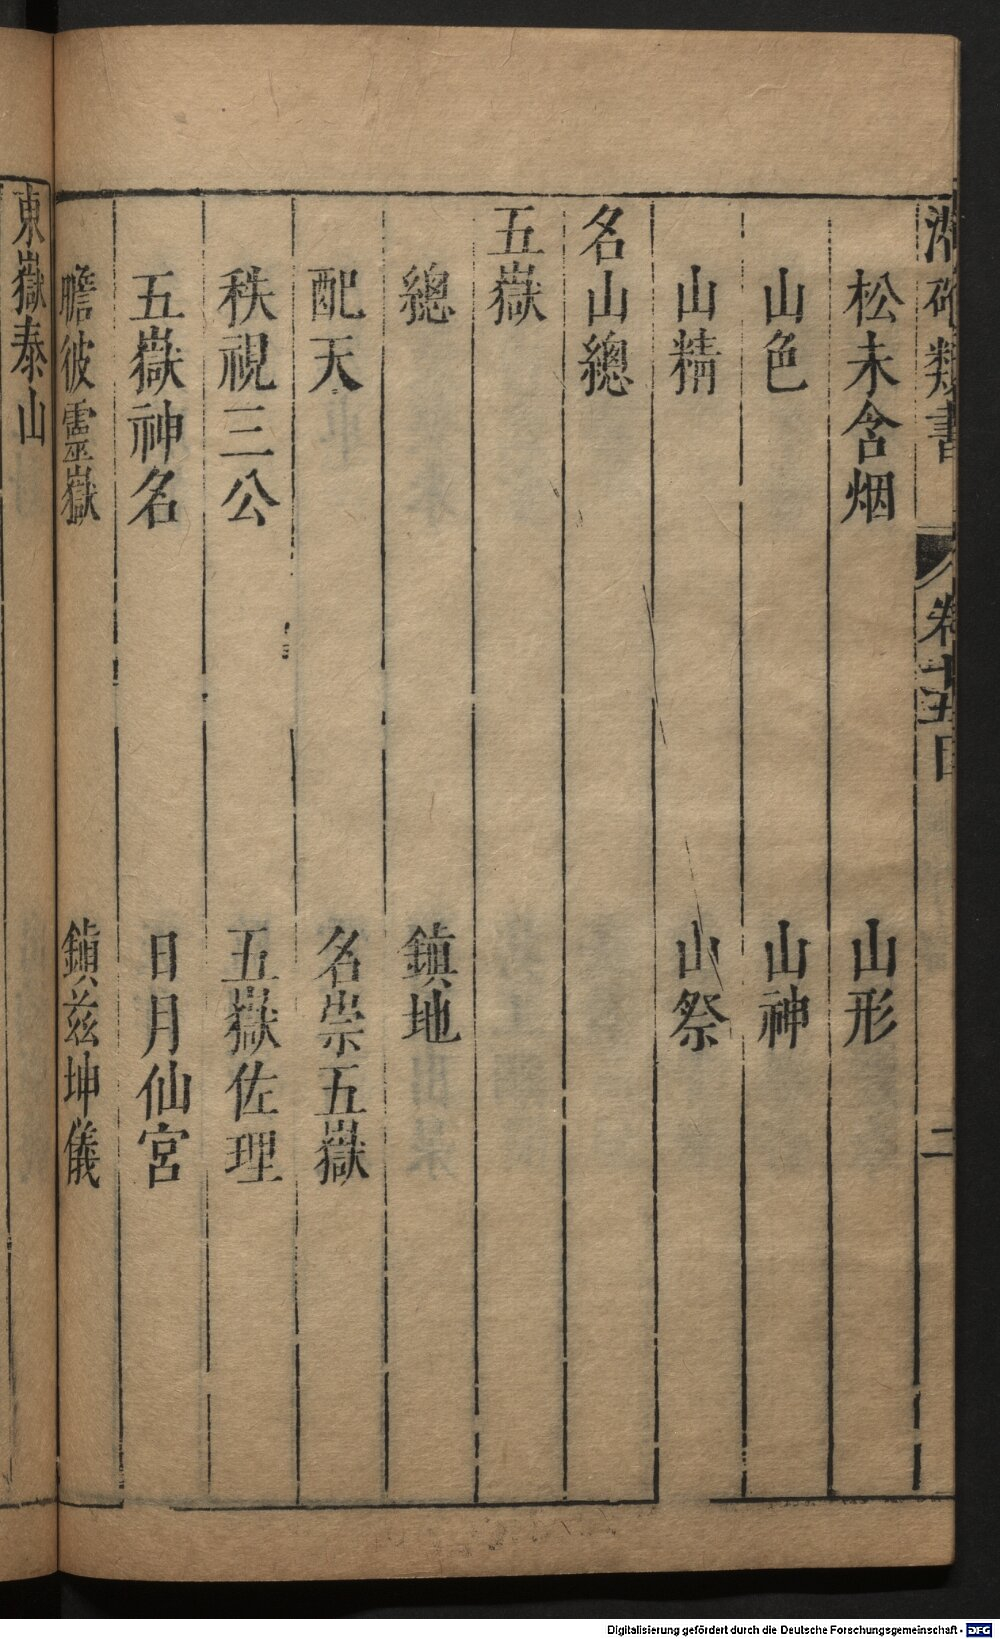 潛確類書 卷十五目 二
松未含烟 山形
山色 山神
山精 山祭
名山總
五嶽
總 鎭地
配天 名崇五嶽
秩視三公 五嶽佐理
五嶽神名 日月仙宮
瞻彼靈嶽 鎭兹坤儀
東嶽泰山
Digitalisierung gefördert durch die Deutsche Forschungsgemeinschaft - DFG